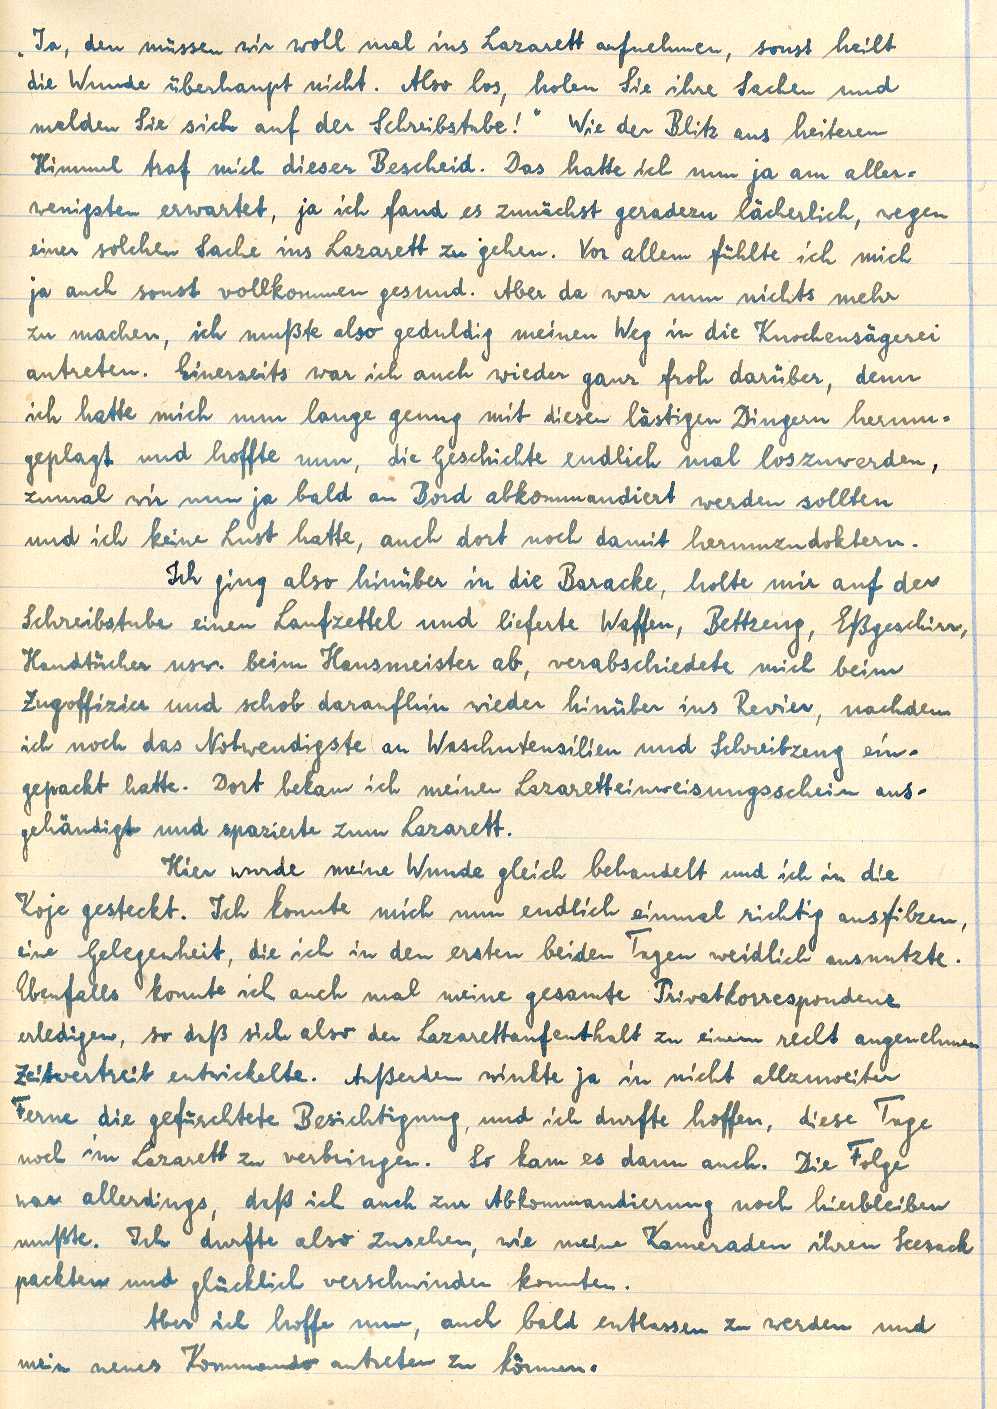 „Ja, den müssen wir woll mal ins Lazarett aufnehmen, sonst heilt
die Wunde überhaupt nicht. Also los, holen Sie ihre Sachen und
melden Sie sich auf der Schreibstube!" Wie der Blitz aus heiterem
Himmel traf mich dieser Bescheid. Das hatte ich nun ja am aller-
wenigsten erwartet, ja ich fand es zunächst geradezu lächerlich, wegen
einer solchen Sache ins Lazarett zu gehen. Vor allem fühlte ich mich
ja auch sonst vollkommen gesund. Aber da war nun nichts mehr
zu machen, ich mußte also geduldig meinen Weg in die Knochensägerei
antreten. Einerseits war ich auch wieder ganz froh darüber, denn
ich hatte mich nun lange genug mit diesen lästigen Dingern herum-
geplagt und hoffte nun, die Geschichte endlich mal loszuwerden,
zumal wir nun ja bald an Bord abkommandiert werden sollten
und ich keine Lust hatte, auch dort noch damit herumzudoktern.
Ich ging also hinüber in die Baracke, holte mir auf der
Schreibstube einen Laufzettel und lieferte Waffen, Bettzeug, Eßgeschirr,
Handtücher usw. beim Hausmeister ab, verabschiedete mich beim
Zugoffizier und schob daraufhin wieder hinüber ins Revier, nachdem
ich noch das Notwendigste an Waschutensilien und Schreibzeug ein-
gepackt hatte. Dort bekam ich meinen Lazaretteinweisungsschein aus-
gehändigt und spazierte zum Lazarett.
Hier wurde meine Wunde gleich behandelt und ich in die
Koje gesteckt. Ich konnte mich nun endlich einmal richtig ausfilzen,
eine Gelegenheit, die ich in den ersten beiden Tagen weidlich ausnutzte.
Ebenfalls konnte ich auch mal meine gesamte Privatkorrespondenz
erledigen, so daß sich also der Lazarettaufenthalt zu einem recht angenehmen
Zeitvertreib entwickelte. Außerdem winkte ja in nicht allzuweiter
Ferne die gefürchtete Besichtigung, und ich durfte hoffen, diese Tage
noch im Lazarett zu verbringen. So kam es dann auch. Die Folge
war allerdings, daß ich auch zur Abkommandierung noch hierbleiben
mußte. Ich durfte also zusehen, wie meine Kameraden ihren Seesack
packten und glücklich verschwinden konnten.
Aber ich hoffe nun, auch bald entlassen zu werden und
mein neues Kommando antreten zu können.